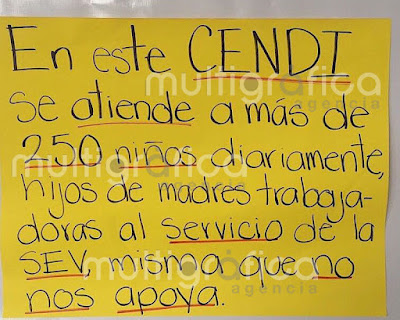 En este CENDI
se atiende a más de
250 niños diariamente,
hijos de madres trabaja-
doras al servicio de la
SEV, misma que no
nos apoya.
multigráfica
agencia
multigráfica
multigráfica
agencia